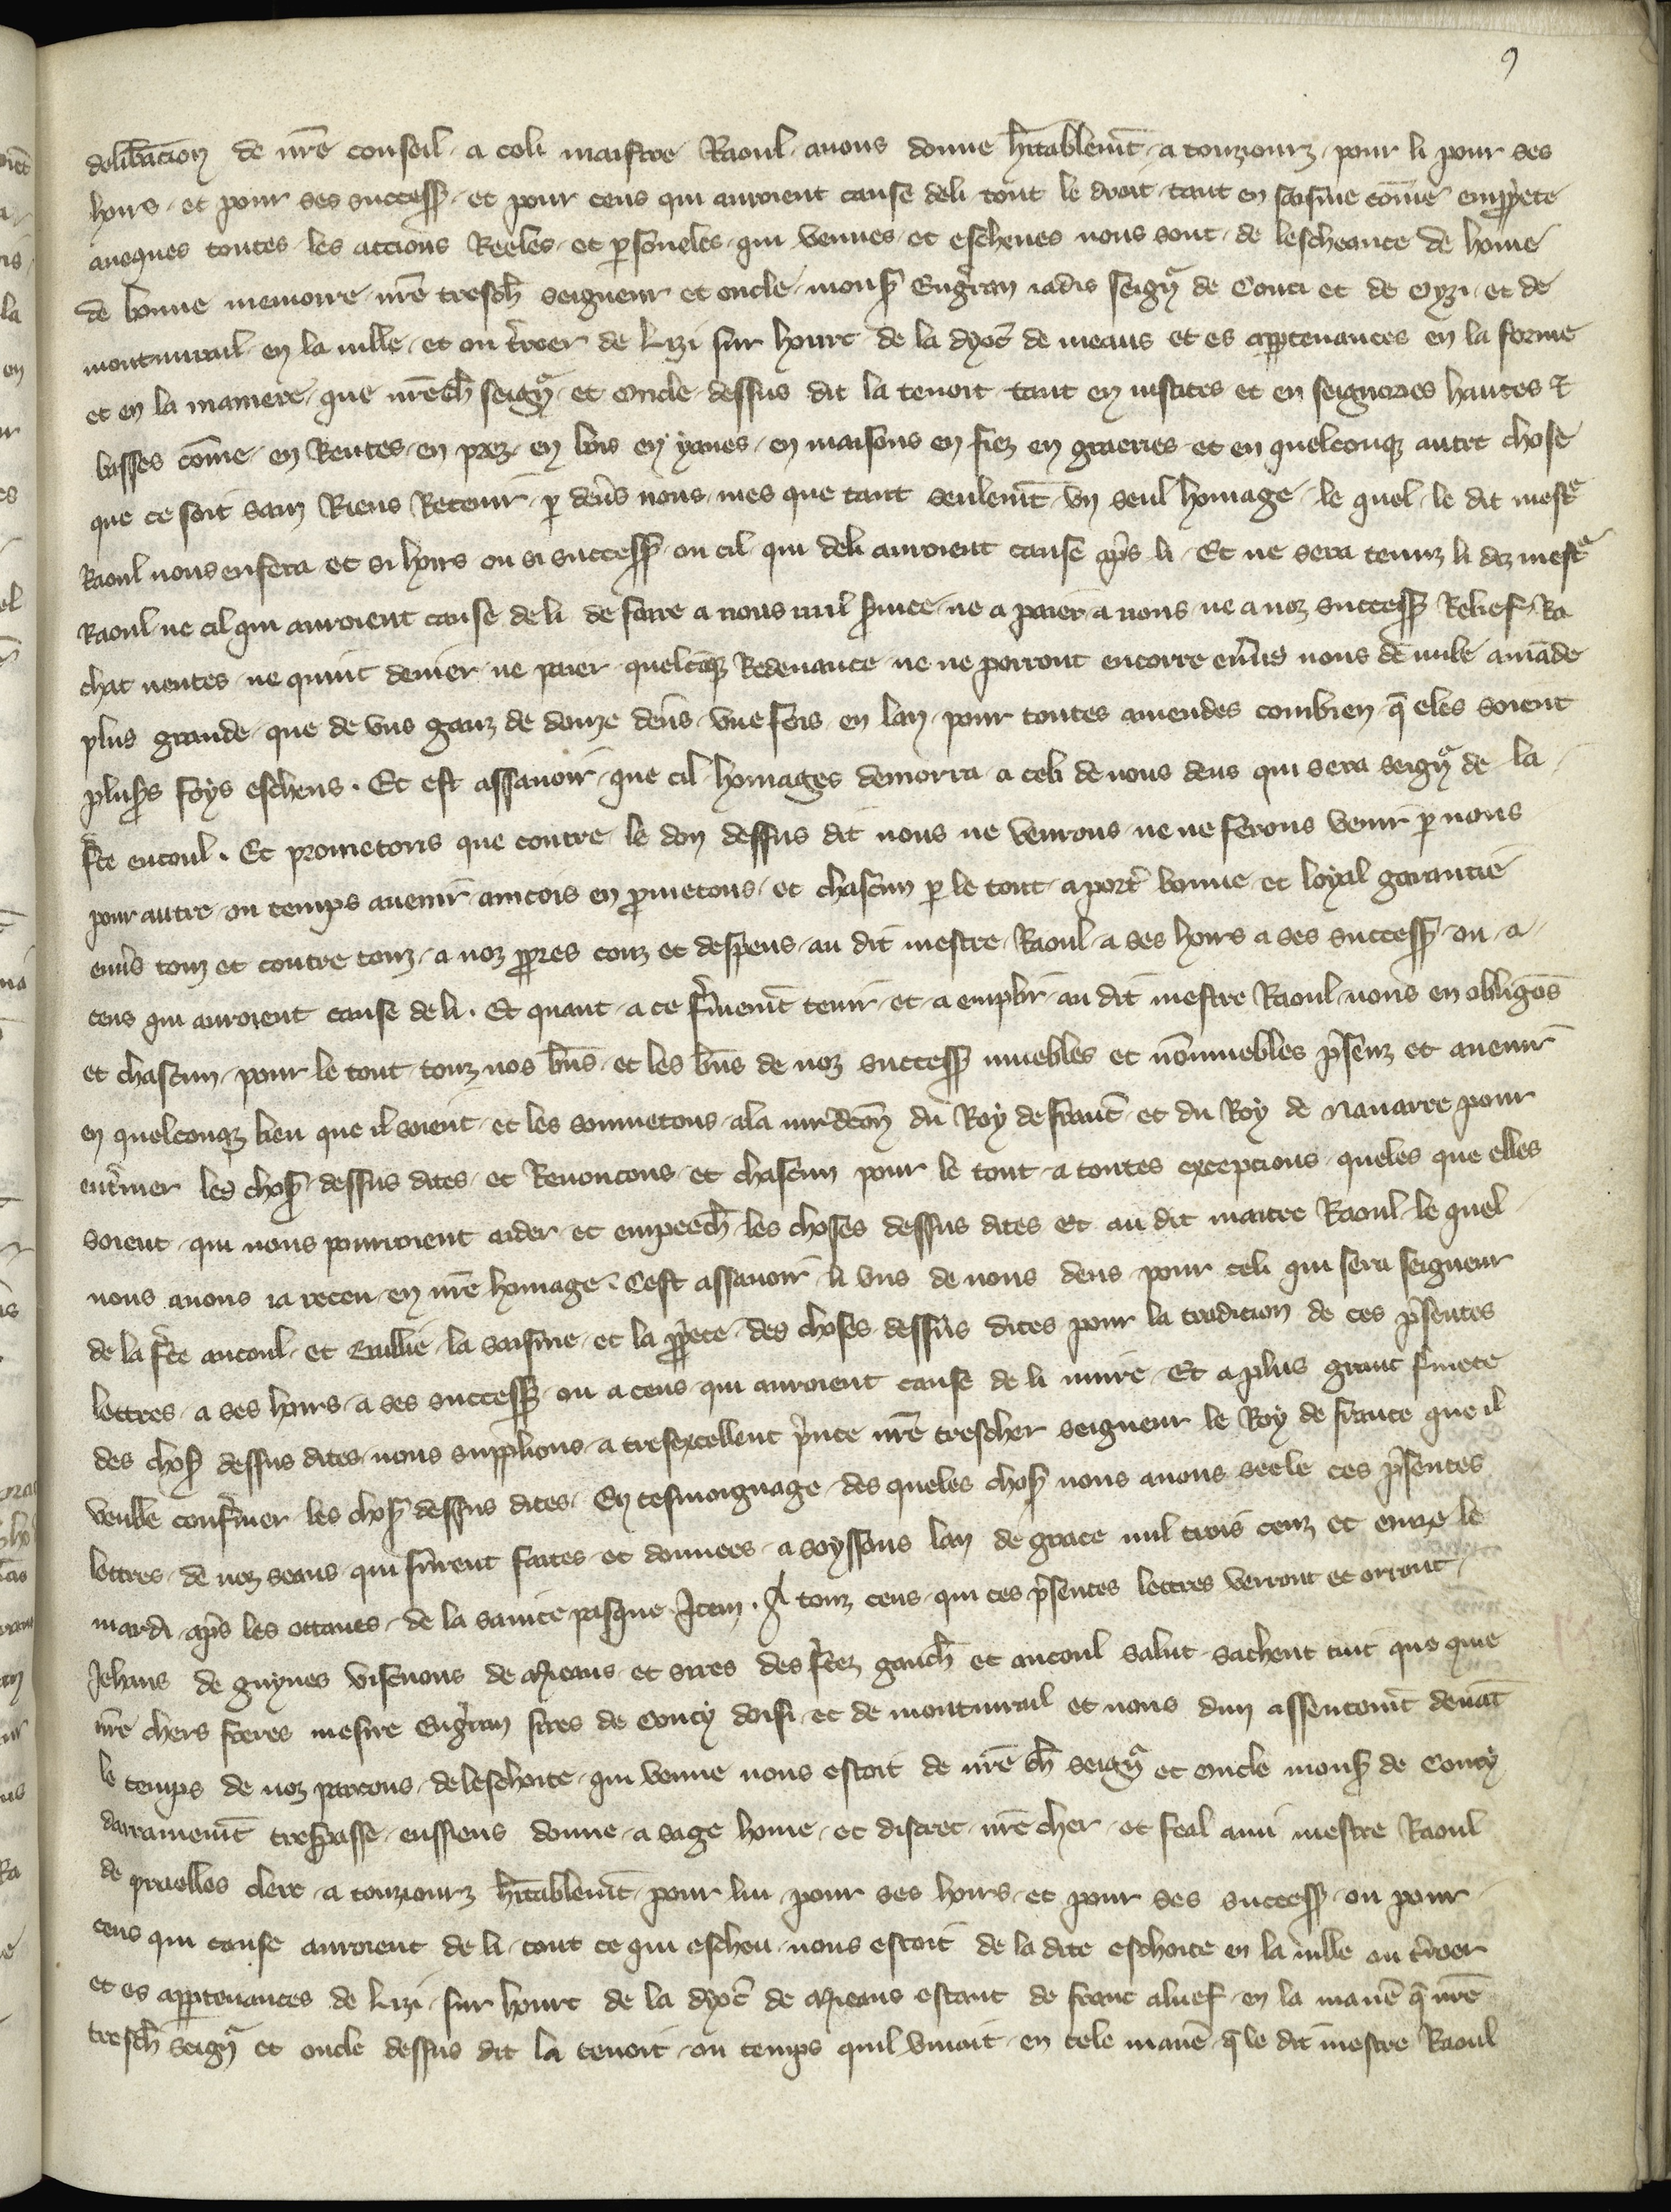 9
deliƀacion de nr̄e conseil a celi maistre Raoul auons donne h̄itablem̄t a touziourz pour li pour ses
hoirs et pour ses success̄ et pour ceus qui auroient cause de li tout le droit tant en saisine cōme en ꝓpriete
aueques toutes les accions Reeles et ꝑsoneles qui venues et escheues nous sont de lescheance de hōme
de bonne memoire nr̄e tresch̄ seigneur et oncle mons̄ Engˀran iadis seigṇͬ de Couci et de Oyzi et de
montmirail en la uille et ou t̉roer de Lizi sur hourc de la dyoc̄ de meaus et es apꝑtenances en la forme
et en la maniere que nr̄e ch̄ seigṇͬ et oncle dessus dit la tenoit tant en iustices et en seignories hautes ⁊
basses cōme en Rentes en prez en bois en yaues en maisons en fiez en graeries et en quelconqꝫ autre chose
que ce soit sanz Riens Retenir ꝑ deu̾s nous mes que tant seulem̄t vn seul homage le quel le dit mestͤ
Raoul nous en fera et si hoirs ou si success̄ ou cil qui de li auroient cause ap̾s li Et ne sera tenuz li diz mestͤ
Raoul ne cil qui auroient cause de li de faire a nous nul s̾uice ne a paier a nous ne a noz success̄ Relief Ra
chat uentes ne quint denier ne paier quelcōqꝫ Redeuance ne ne porront encorre enu̾s nous de nule amāde
plus grande que de vns ganz de douze den̄s vne fois en lan pour toutes amendes combien q̄ eles soient
plus̾s foys escheus . Et est assauoir que cil homages demorra a celi de nous deus qui sera seigṇͬ de la
f̾te encoul . Et prometons que contre le don dessus dit nous ne venrons ne ne ferons venir ꝑ nous
pour autre ou temps auenir aincois en ꝓmetons et chascun ꝑ le tout a port̾ bonne et loyal garantie
enu̾s touz et contre touz a noz ꝓpres couz et despens au dit mestre Raoul a ses hoirs a ses success̄ ou a
ceus qui auroient cause de li . Et quant a ce f̾mem̄t tenir et a emplir au dit mestre Raoul nous en obligōs
et chascun pour le tout touz nos bn̄s et les bn̄s de noz success̄ muebles et nōmuebles p̾senz et auenir
en quelconqꝫ lieu que il soient et les soumetons a la iur̄dcōn du Roy de franc̄ et du Roy de Nauarre pour
ent̾iner les chos̄ dessus dites et Renoncons et chascun pour le tout a toutes excepcions queles que elles
soient qui nous pourroient aider et empeech̄ les choses dessus dites Et au dit maitre Raoul le quel
nous auons ia receu en nr̄e homage . Cest assauoir li vns de nous deus pour celi qui sera seigneur
de la f̾te ancoul et baillie la saisine et la ꝓpriete des choses dessus dites pour la tradicion de ces p̾sentes
lettres a ses hoirs a ses success̄ ou a ceus qui auroient cause de li nuire Et a plus grant f̾mete
des chos̄ dessus dites nous supplions a tresexcellent p̾nce nr̄e trescher seigneur le Roy de france que il
veulle conf̾mer les chos̄ dessus dites En tesmoignage des queles chos̄ nous auons seele ces p̾sentes
lettres de noz seaus qui furent faites et donnees a soyssons lan de grace mil trois cenz et onze le
mardi ap̾s les ottaues de la sainte pasque Item . A touz ceus qui ces p̾sentes lettres verront et orront
Jehans de guynes viscuons de Meaus et sires des f̾tez gauch̄ et ancoul salut sachent tuit que que
nr̄e chers freres mesire Engˀran sires de Coucy doisi et de montmirail et nous dun assentem̄t deuāt
le temps de noz parcons de leschoite qui venue nous estoit de nr̄e ch̄ seigṇͬ et oncle mons̄ de Coucy
darrainem̄t trespasse eussiens donne a sage home et discret nr̄e cher et feal ami mestre Raoul
de praelles clerc a touziourz h̄itablem̄t pour lui pour ses hoirs et pour ses success̄ ou pour
ceus qui cause auroient de li tout ce qui escheu nous estoit de la dite eschoite en la uille ou t̉roer
et es apꝑtenances de Lizi sur hourc de la dyoc̄ de Meaus estant de franc aluef en la manē q̄ nr̄e
tresch̄ seigṇͬ et oncle dessus dit la tenoit ou temps quil viuoit en tele manē q̄ le dit mestre Raoul